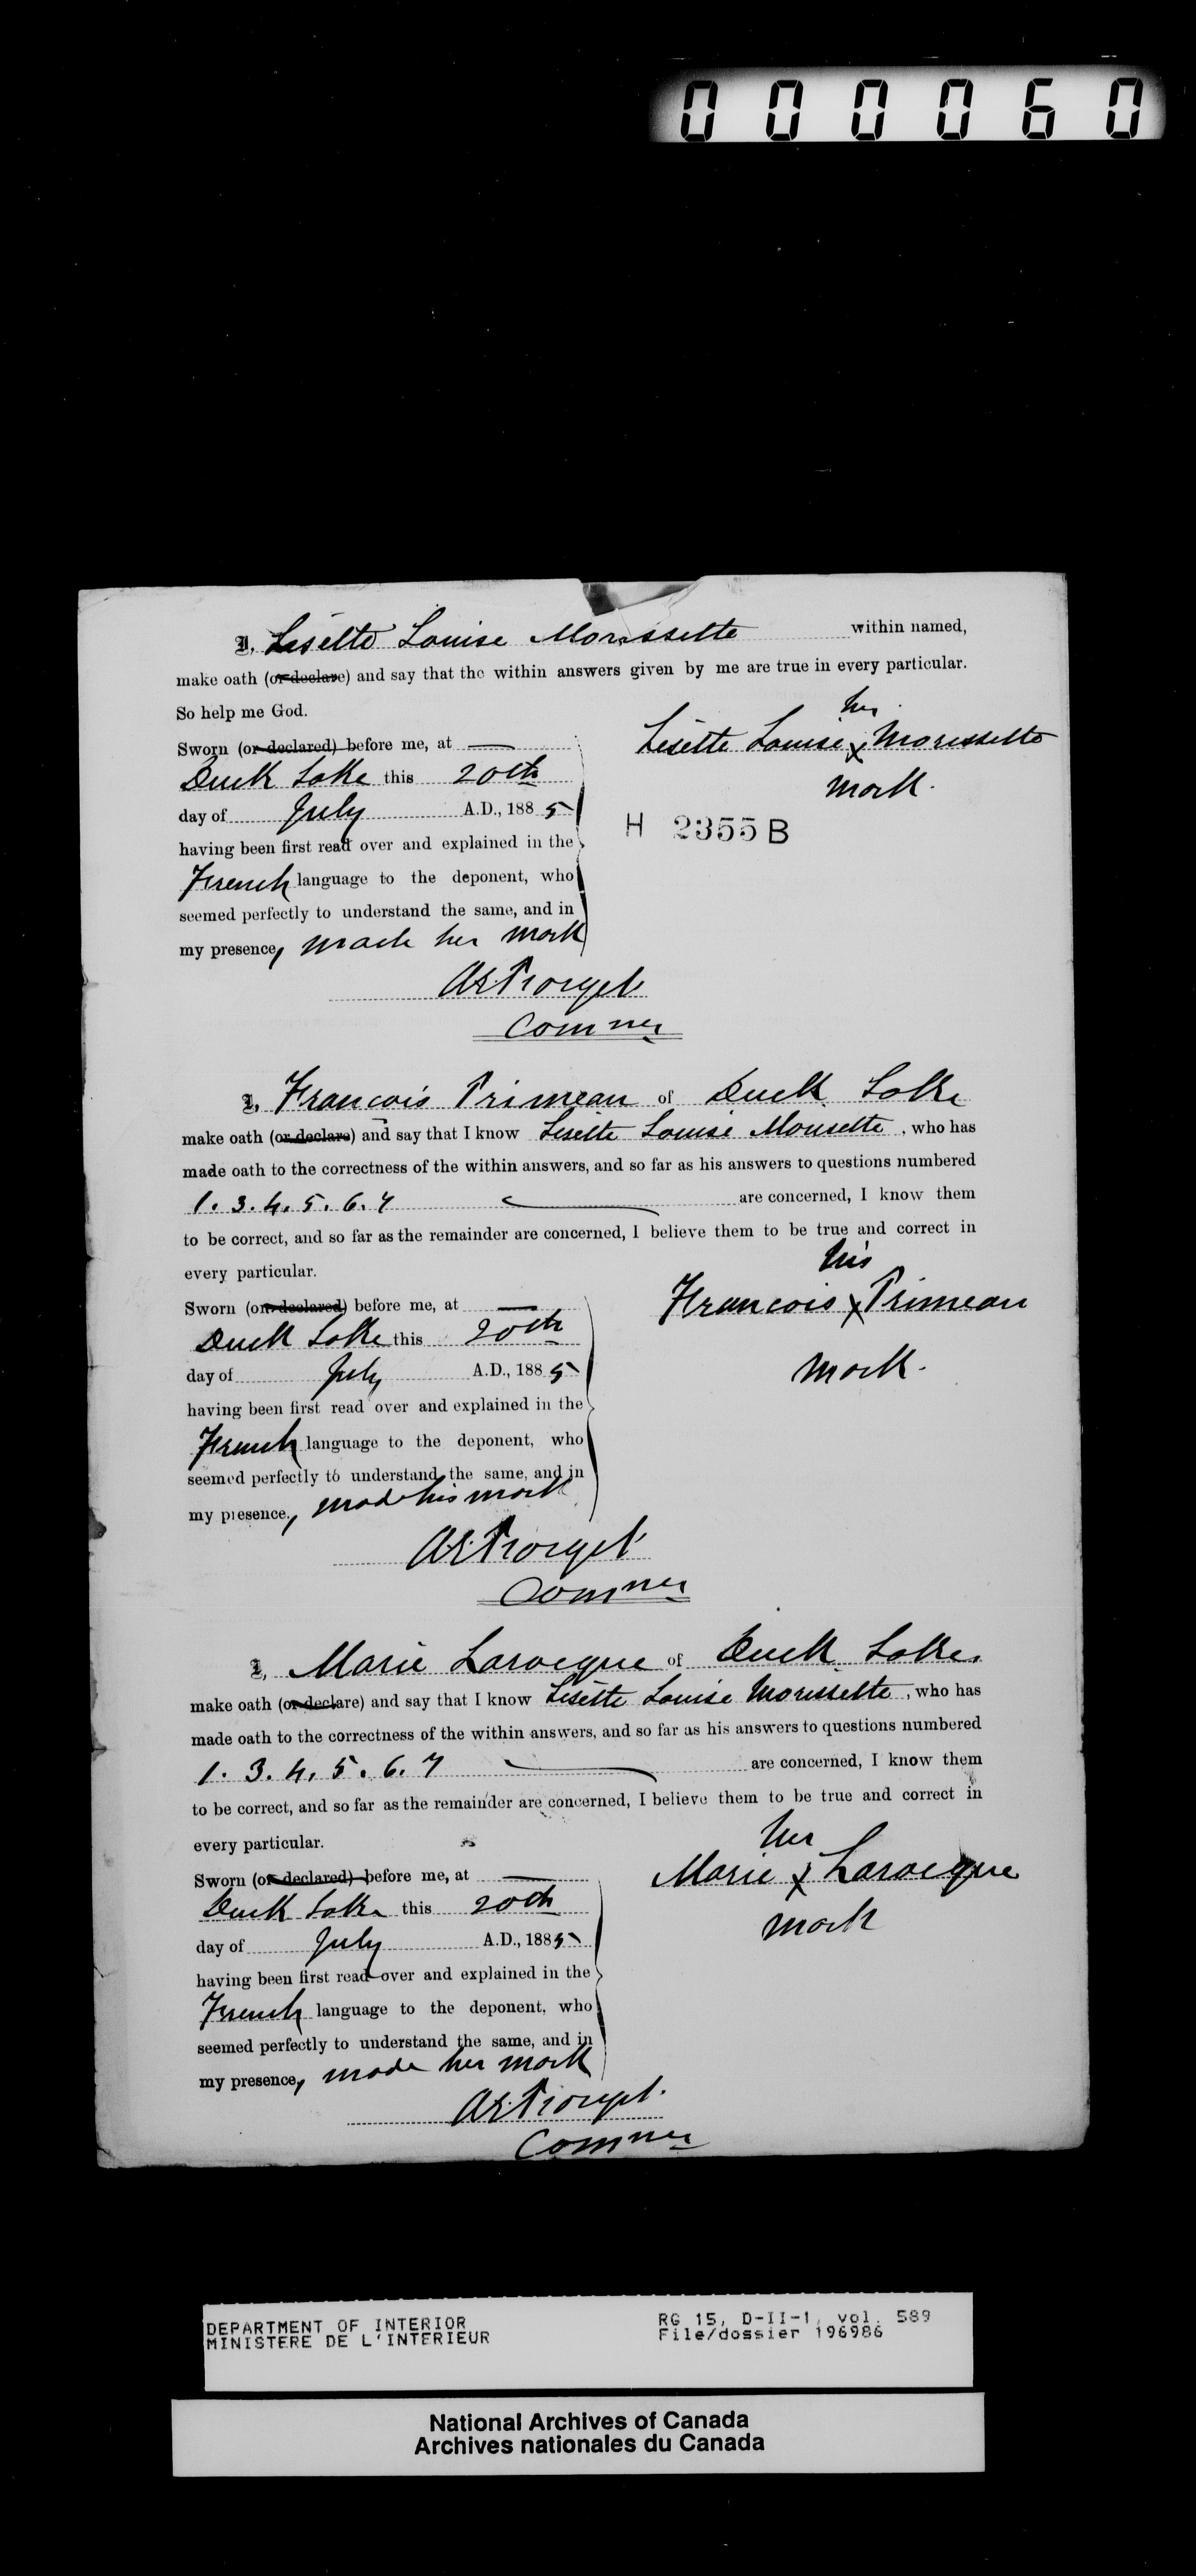 000060
I, Lisette Louise Morissette within named,
make oath (or declare) and say that the within answers given by me are true in every particular.
So help me God.
her
Sworn (or declared) before me, at
Lisette Louise X Morissette
Duck Lake this 20th
mark.
day of July A.D., 1885
H 2355 B
having been first read over and explained in the
French language to the deponent, who
seemed perfectly to understand the same, and in
my presence, made her mark
AEForget
Commer
I, Francois Primeau of Duck Lake
make oath (or declare) and say that I know Lisette Louise Morisette, who has
made oath to the correctness of the within answers, and so far as his answers to questions numbered
1. 3. 4. 5. 6. 7 are concerned, I know them
to be correct, and so far as the remainder are concerned, I believe them to be true and correct in
every particular.
his
Sworn (or declared) before me, at
Francois X Primeau
Duck Lake this 20th
mark.
day of July A.D., 1885
having been first read over and explained in the
French language to the deponent, who
seemed perfectly to understand the same, and in
my presence, made his mark
AEForget
Commer
I, Marie Larocque of Duck Lake,
make oath (or declare) and say that I know Lisette Louise Morissette, who has
made oath to the correctness of the within answers, and so far as his answers to questions numbered
1. 3. 4. 5. 6. 7 are concerned, I know them
to be correct, and so far as the remainder are concerned, I believe them to be true and correct in
every particular.
her
Sworn (or declared) before me, at
Marie X Larocque
Duck Lake this 20th
mark
day of July A.D., 1885
having been first read over and explained in the
French language to the deponent, who
seemed perfectly to understand the same, and in
my presence, made her mark
AEForget.
Commer
DEPARTMENT OF INTERIOR
MINISTERE DE L'INTERIEUR
RG 15, D-II-1, vol. 589
File/dossier 196986
National Archives of Canada
Archives nationales du Canada